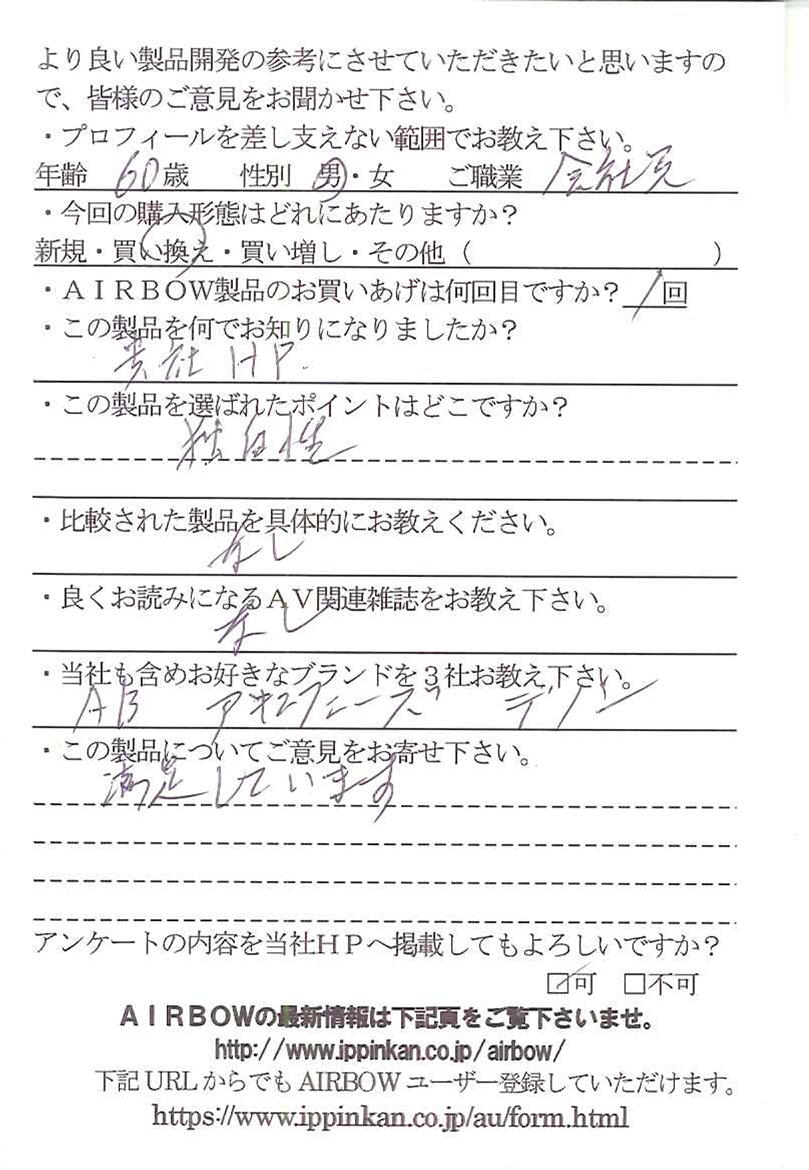 より良い製品開発の参考にさせていただきたいと思いますの
で、皆様のご意見をお聞かせ下さい。
・プロフィールを差し支えない範囲でお教え下さい。
年齢 60歳 性別 男・女 ご職業 会社員
・今回の購入形態はどれにあたりますか？
新規・買い換え・買い増し・その他（ ）
・ＡＩＲＢＯＷ製品のお買いあげは何回目ですか？ 1回
・この製品を何でお知りになりましたか？
貴社HP.
・この製品を選ばれたポイントはどこですか？
独自性
・比較された製品を具体的にお教えください。
なし
・良くお読みになるＡＶ関連雑誌をお教え下さい。
なし
・当社も含めお好きなブランドを３社お教え下さい。
AB アキュフェーズ デノン
・この製品についてご意見をお寄せ下さい。
満足しています
アンケートの内容を当社ＨＰへ掲載してもよろしいですか？
☑可 □不可
ＡＩＲＢＯＷの最新情報は下記頁をご覧下さいませ。
http://www.ippinkan.co.jp/airbow/
下記 URL からでも AIRBOW ユーザー登録していただけます。
https://www.ippinkan.co.jp/au/form.html